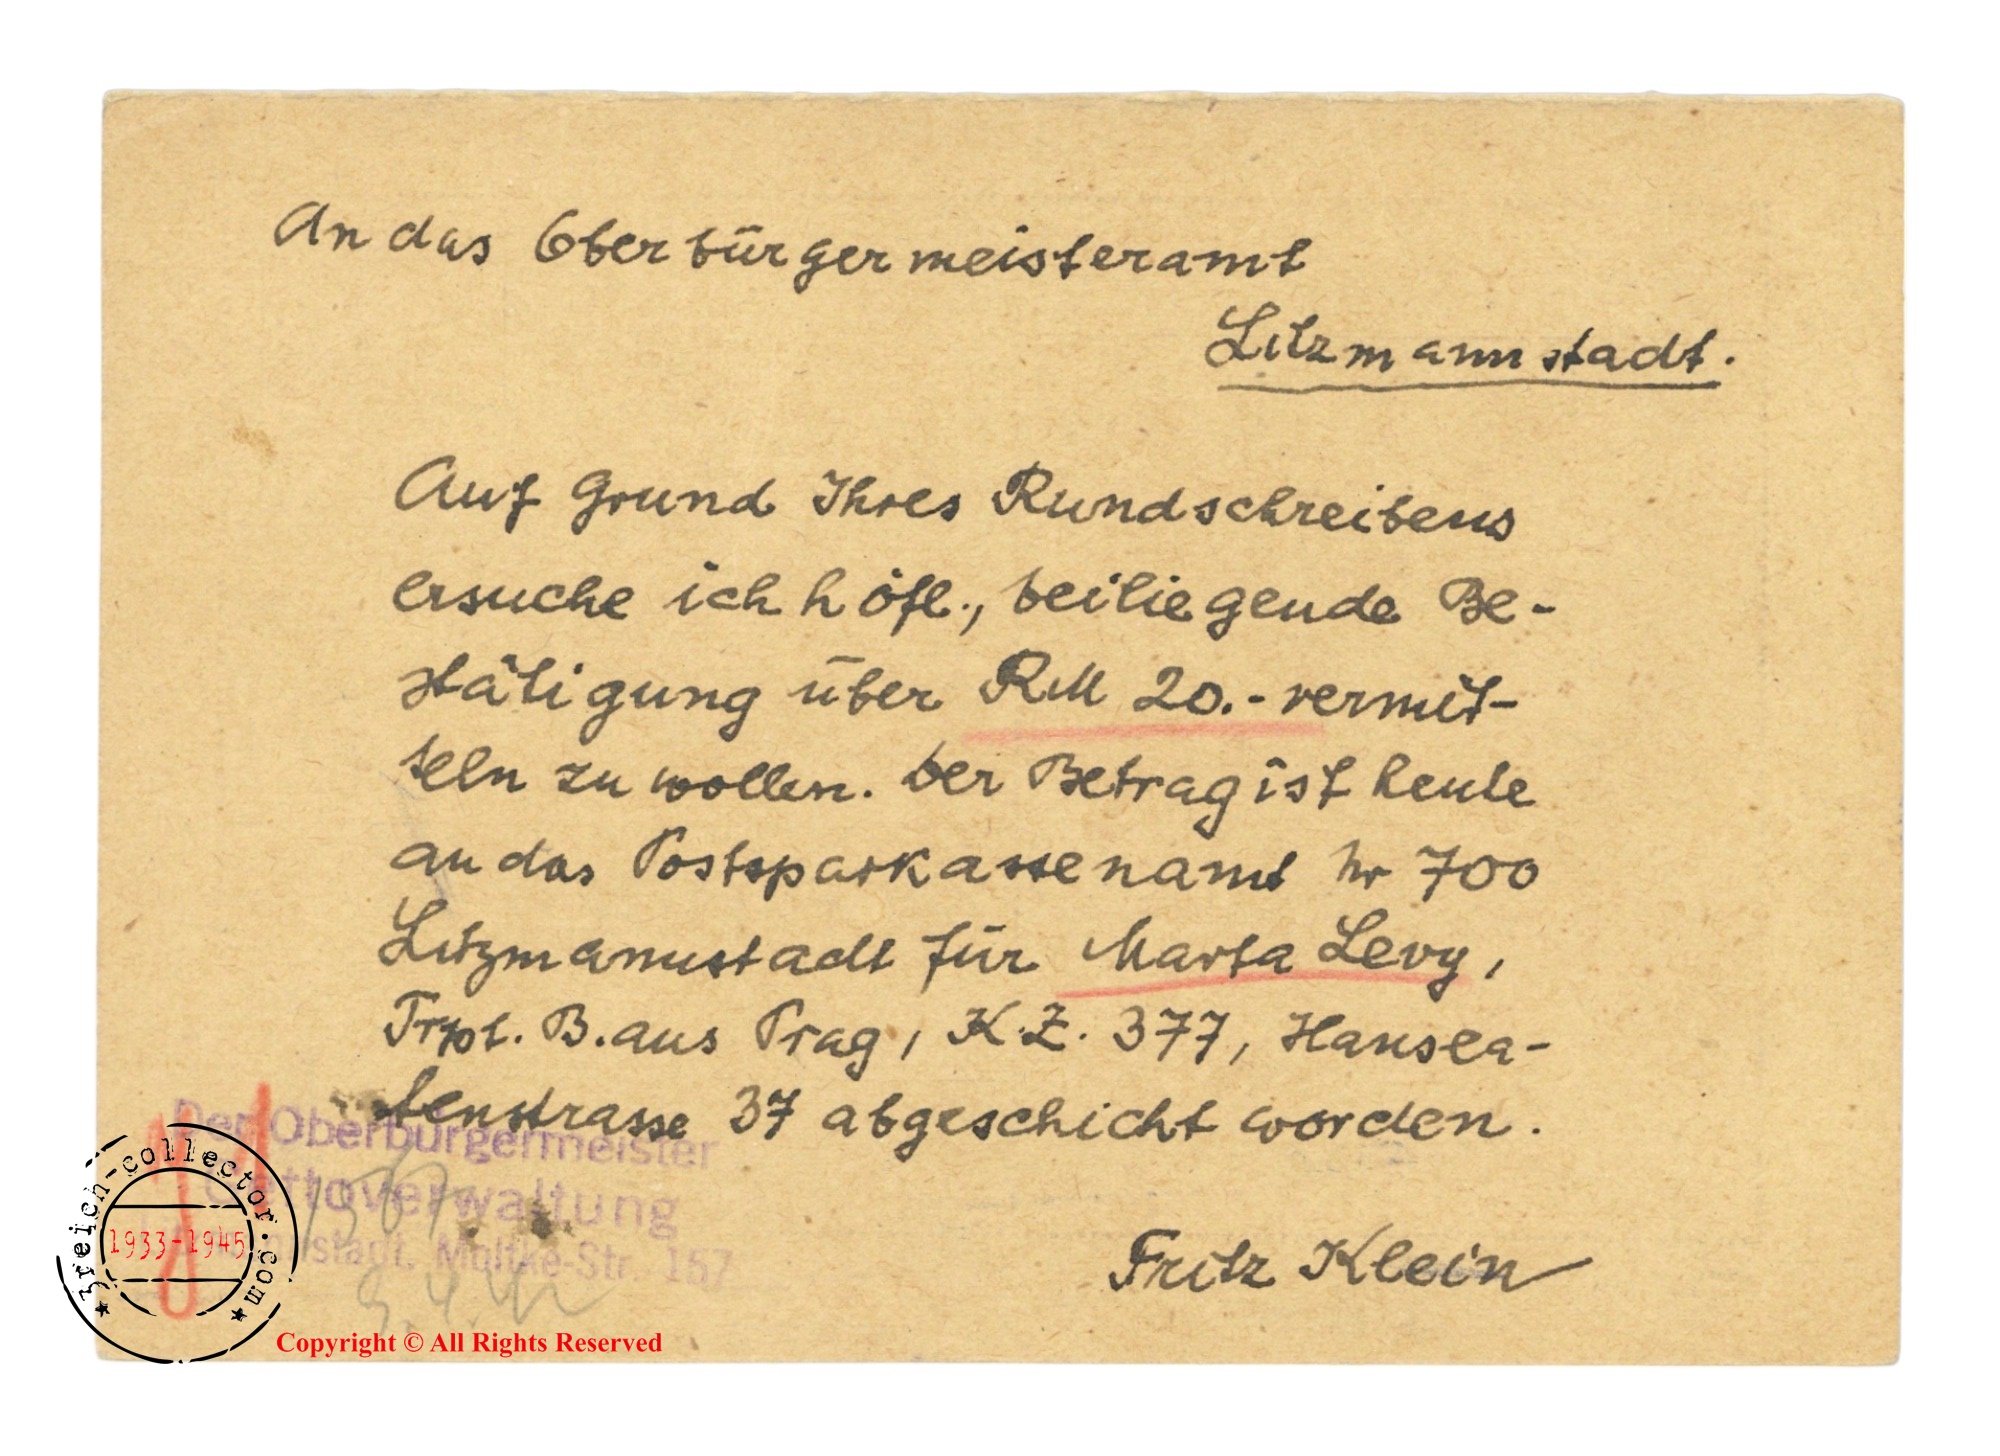 An das Oberbürgermeisteramt
Litzmannstadt.
Auf Grund Ihres Rundschreibens
ersuche ich höfl., beiliegende Be-
stätigung über RM 20.- vermit-
teln zu wollen. Der Betrag ist heute
an das Postsparkassenamt Nr 700
Litzmannstadt für Marta Levy,
Trpt. B. aus Prag, K.Z. 377, Hansea-
tenstrasse 37 abgeschickt worden.
Der Oberbürgermeister
Gettoverwaltung
Moltke-Str. 157
Fritz Klein
3reich-collector.com
1933-1945
Copyright © All Rights Reserved